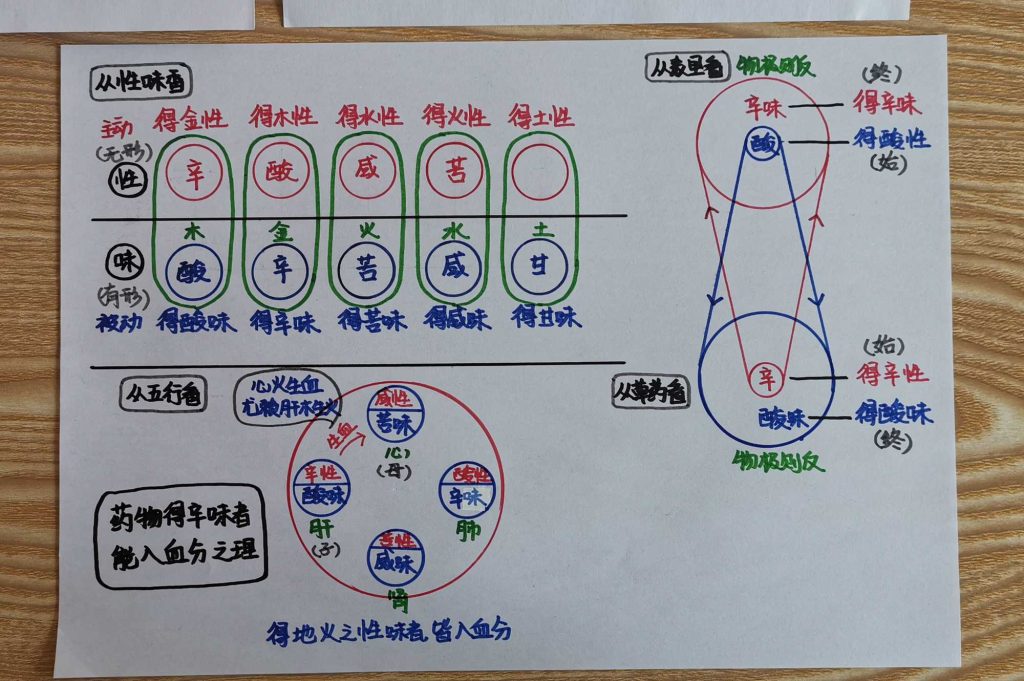 从性味看
主动 得金性 得木性 得水性 得火性 得土性
(无形)
性 辛 酸 咸 苦
木 金 火 水 土
味 酸 辛 苦 咸 甘
(有形)
被动 得酸味 得辛味 得苦味 得咸味 得甘味
从五行看
心火生血
尤赖肝木生火
生血
咸性
苦味
心
(母)
辛性
酸味
肝
(子)
酸性
辛味
肺
苦性
咸味
肾
药物得辛味者
能入血分之理
得地火之性味者,皆入血分
物极则反
辛味
(终)
得辛味
酸
得酸性
(始)
从草药看
(始)
辛
得辛性
酸味
得酸味
(终)
物极则反